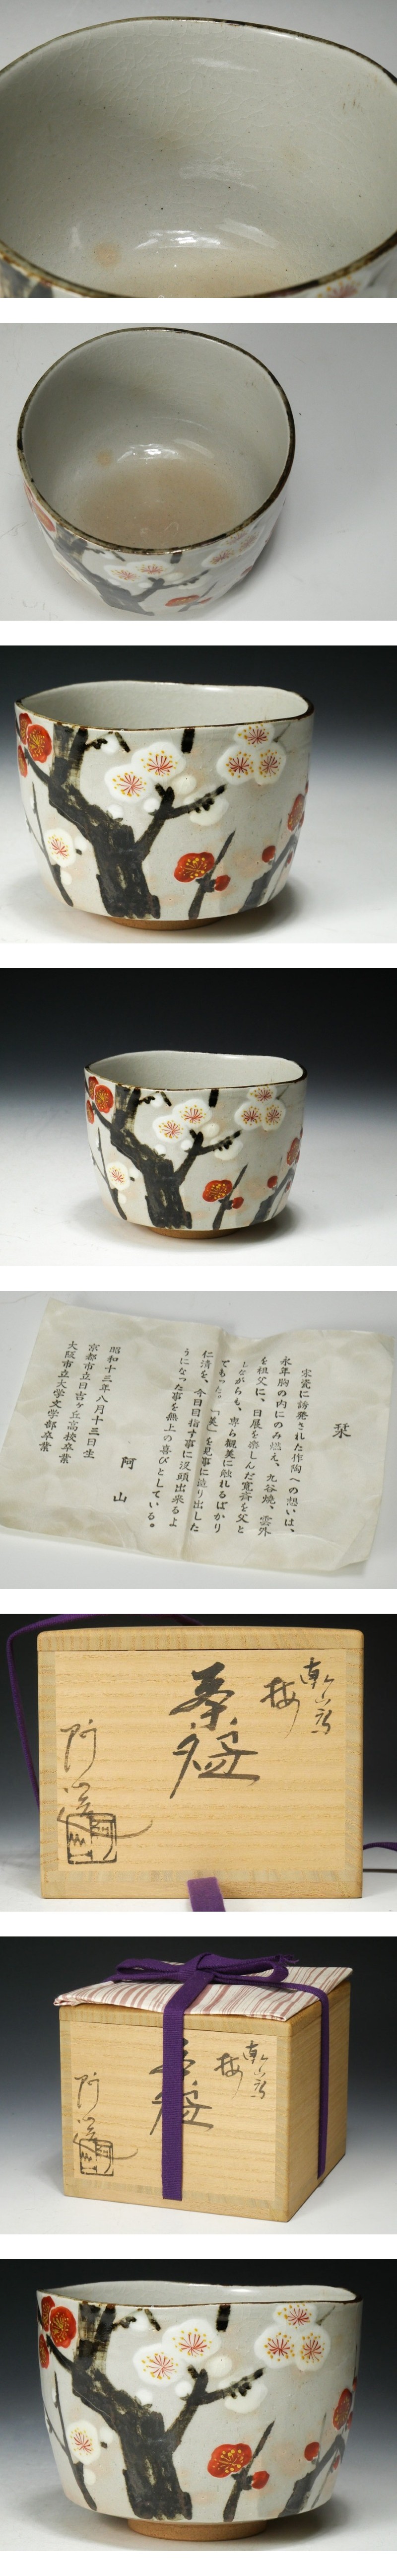 栞
宋瓷に誘発された作陶への想いは、
永年胸の内にのみ燃え、九谷焼、雲外
を祖父に、日展を楽しんだ寛斉を父と
しながらも、専ら観美に触れるばかり
てもった。「美」を見事に造り出した
仁清を、今日目指す事に没頭出来るよ
うになった事を無上の喜びとしている。
阿山
昭和十三年八月十三日生
京都市立日吉ヶ丘高校卒業
大阪市立大学文学部卒業
乾山写
梅
茶碗
阿山
乾山写
梅
茶碗
阿山